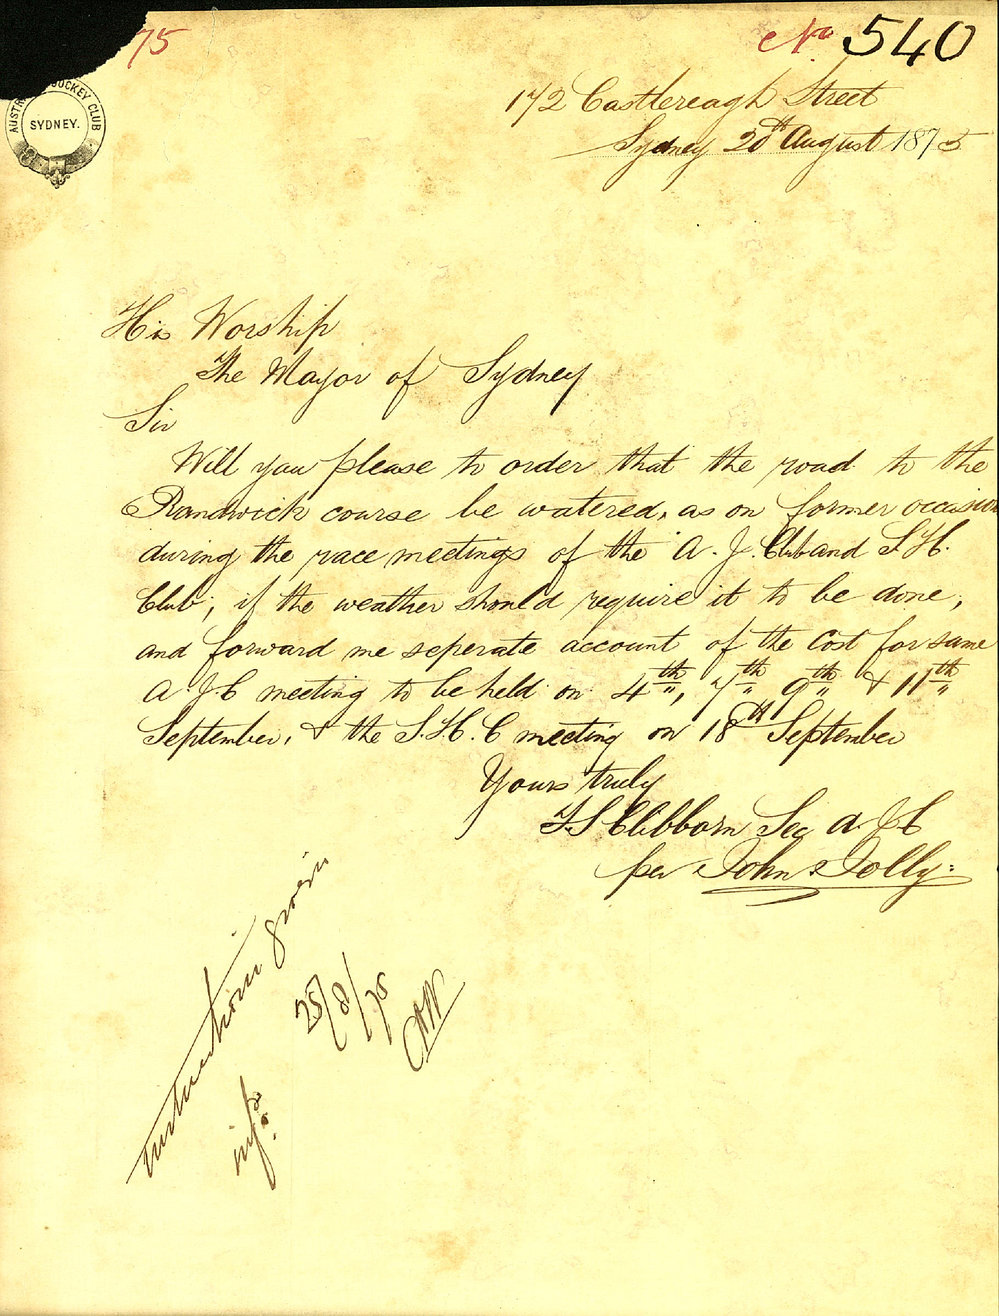 75
No 540
AUSTR JOCKEY CLUB
SYDNEY.
172 Castlereagh Street
Sydney 20th August 1875
His Worship
The Mayor of Sydney
Sir
Will you please to order that the road to the
Randwick course be watered, as on former occasion
during the race meetings of the A. J. Club and S. H.
Club, if the weather should require it to be done,
and forward me seperate account of the cost for same
A. J. C meeting to be held on 4th, 7th, 9th & 11th
September, & the S. H. C meeting on 18th September
Yours truly
T. S. Clibborn Sec A. J. C
per John Jolly.
instructions given
25/8/75